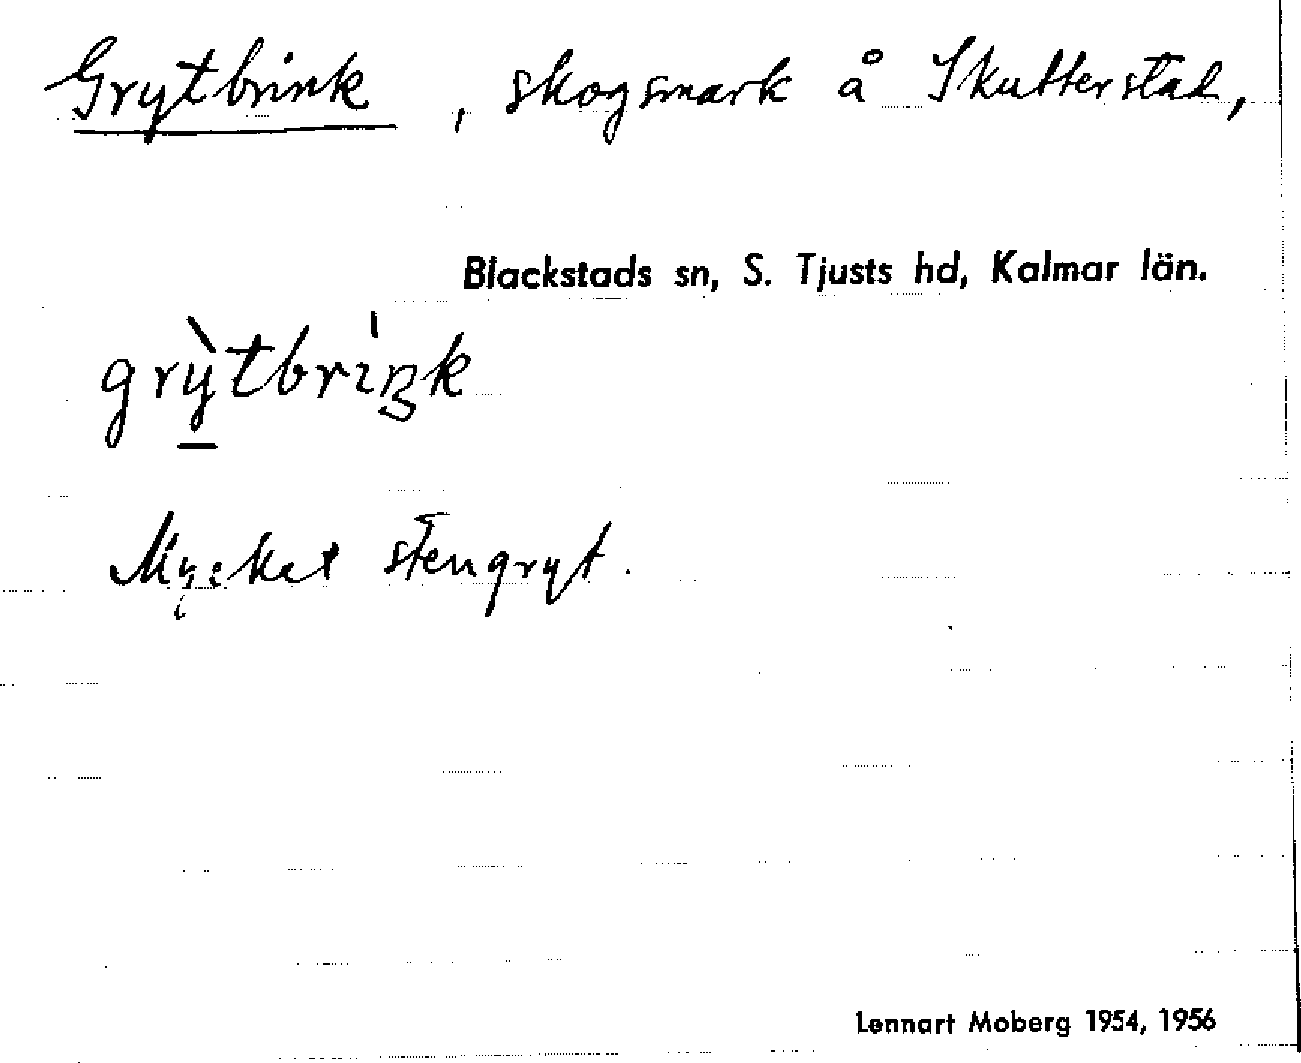 Grytbrink, skogsmark å Skutterstad,
Blackstads sn, S. Tjusts hd, Kalmar län.
grỳ̲tbrìŋk
Mycket stengryt.
Lennart Moberg 1954, 1956